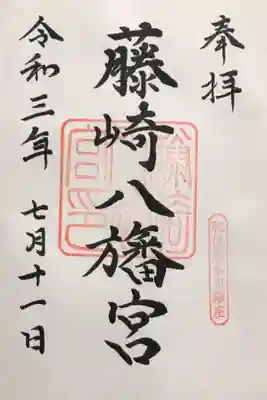 奉拝
藤崎八旛宮
令和三年 七月十一日